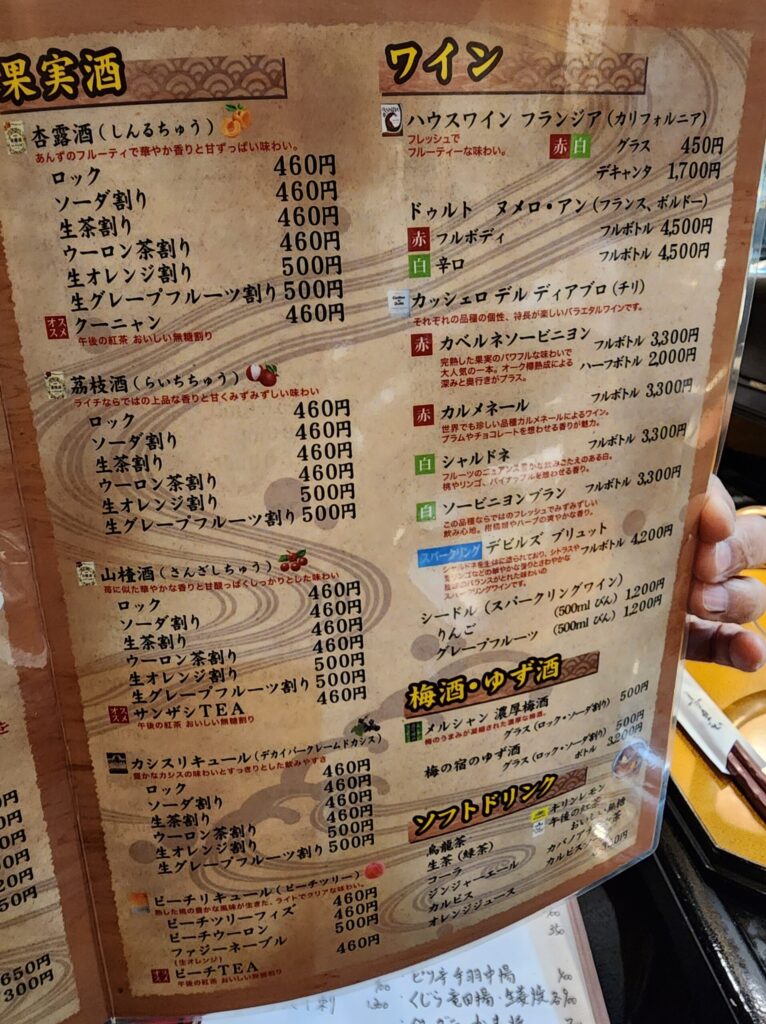 果実酒
杏露酒（しんるちゅう）
あんずのフルーティで華やか香りと甘ずっぱい味わい。
ロック 460円
ソーダ割り 460円
生茶割り 460円
ウーロン茶割り 460円
生オレンジ割り 500円
生グレープフルーツ割り 500円
オススメ クーニャン 460円
午後の紅茶 おいしい無糖割り
茘枝酒（らいちちゅう）
ライチならではの上品な香りと甘くみずみずしい味わい
ロック 460円
ソーダ割り 460円
生茶割り 460円
ウーロン茶割り 460円
生オレンジ割り 500円
生グレープフルーツ割り 500円
山楂酒（さんざしちゅう）
苺に似た華やかな香りと甘酸っぱくしっかりとした味わい
ロック 460円
ソーダ割り 460円
生茶割り 460円
ウーロン茶割り 460円
生オレンジ割り 500円
生グレープフルーツ割り 500円
オススメ サンザシTEA 460円
午後の紅茶 おいしい無糖割り
カシスリキュール（デカイパークレームドカシス）
豊かなカシスの味わいとすっきりとした飲みやすさ
ロック 460円
ソーダ割り 460円
生茶割り 460円
ウーロン茶割り 460円
生オレンジ割り 500円
生グレープフルーツ割り 500円
ピーチリキュール（ピーチツリー）
熟した桃の豊かな風味が生きた、ライトでクリアな味わい。
ピーチツリーフィズ 460円
ピーチウーロン 460円
ファジーネーブル 500円
（生オレンジ）
オススメ ピーチTEA 460円
午後の紅茶 おいしい無糖割り
ワイン
ハウスワイン フランジア（カリフォルニア）
フレッシュで
フルーティーな味わい。
赤 白 グラス 450円
デキャンタ 1,700円
ドゥルト ヌメロ・アン（フランス、ボルドー）
赤 フルボディ フルボトル 4,500円
白 辛口 フルボトル 4,500円
カッシェロ デル ディアブロ（チリ）
それぞれの品種の個性、特長が楽しいバラエタルワインです。
赤 カベルネソービニヨン フルボトル 3,300円
完熟した果実のパワフルな味わいで
大人気の一本。オーク樽熟成による
深みと奥行きがプラス。
ハーフボトル 2,000円
赤 カルメネール フルボトル 3,300円
世界でも珍しい品種カルメネールによるワイン。
プラムやチョコレートを想わせる香りが魅力。
白 シャルドネ フルボトル 3,300円
フルーツのニュアンス豊かな飲みごたえのある白。
桃やリンゴ、パイナップルを想わせる香り。
白 ソービニヨンブラン フルボトル 3,300円
この品種ならではのフレッシュでみずみずしい
飲み心地。柑橘類やハーブの爽やかな香り。
スパークリング デビルズ ブリュット
フルボトル 4,200円
スパークリングワインです。
シードル（スパークリングワイン）
りんご （500ml びん） 1,200円
グレープフルーツ （500ml びん） 1,200円
梅酒・ゆず酒
メルシャン 濃厚梅酒
梅のうまみが凝縮された濃厚な梅酒。
グラス（ロック・ソーダ割り） 500円
梅の宿のゆず酒
グラス（ロック・ソーダ割り） 500円
ボトル 3,200円
ソフトドリンク
烏龍茶
生茶（緑茶）
コーラ
ジンジャーエール
カルピス
オレンジジュース
キリンレモン
午後の紅茶
おいしい無糖
カルピスソーダ
650円
300円